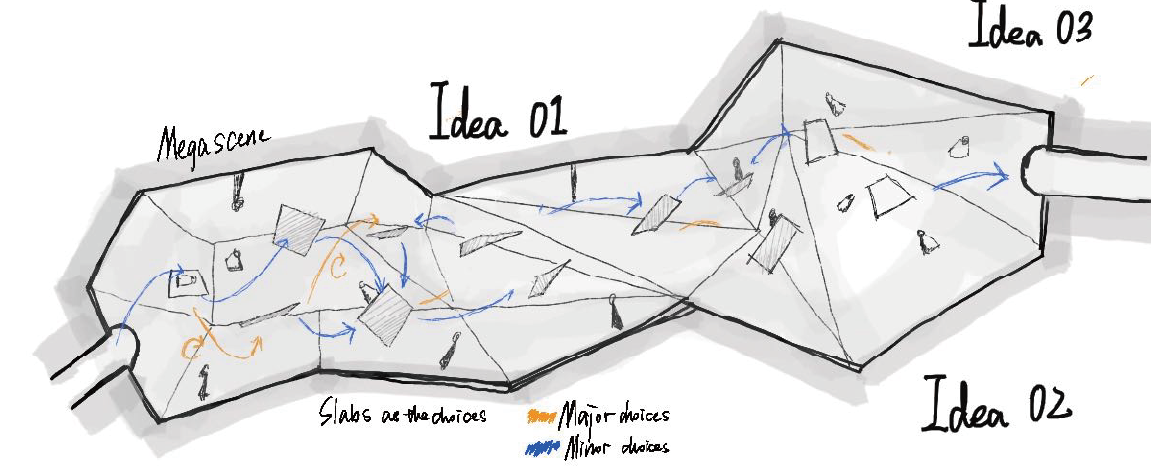 Idea 03
Idea 01
Megascene
Idea 02
Slabs as the choices
Major choices
Minor choices